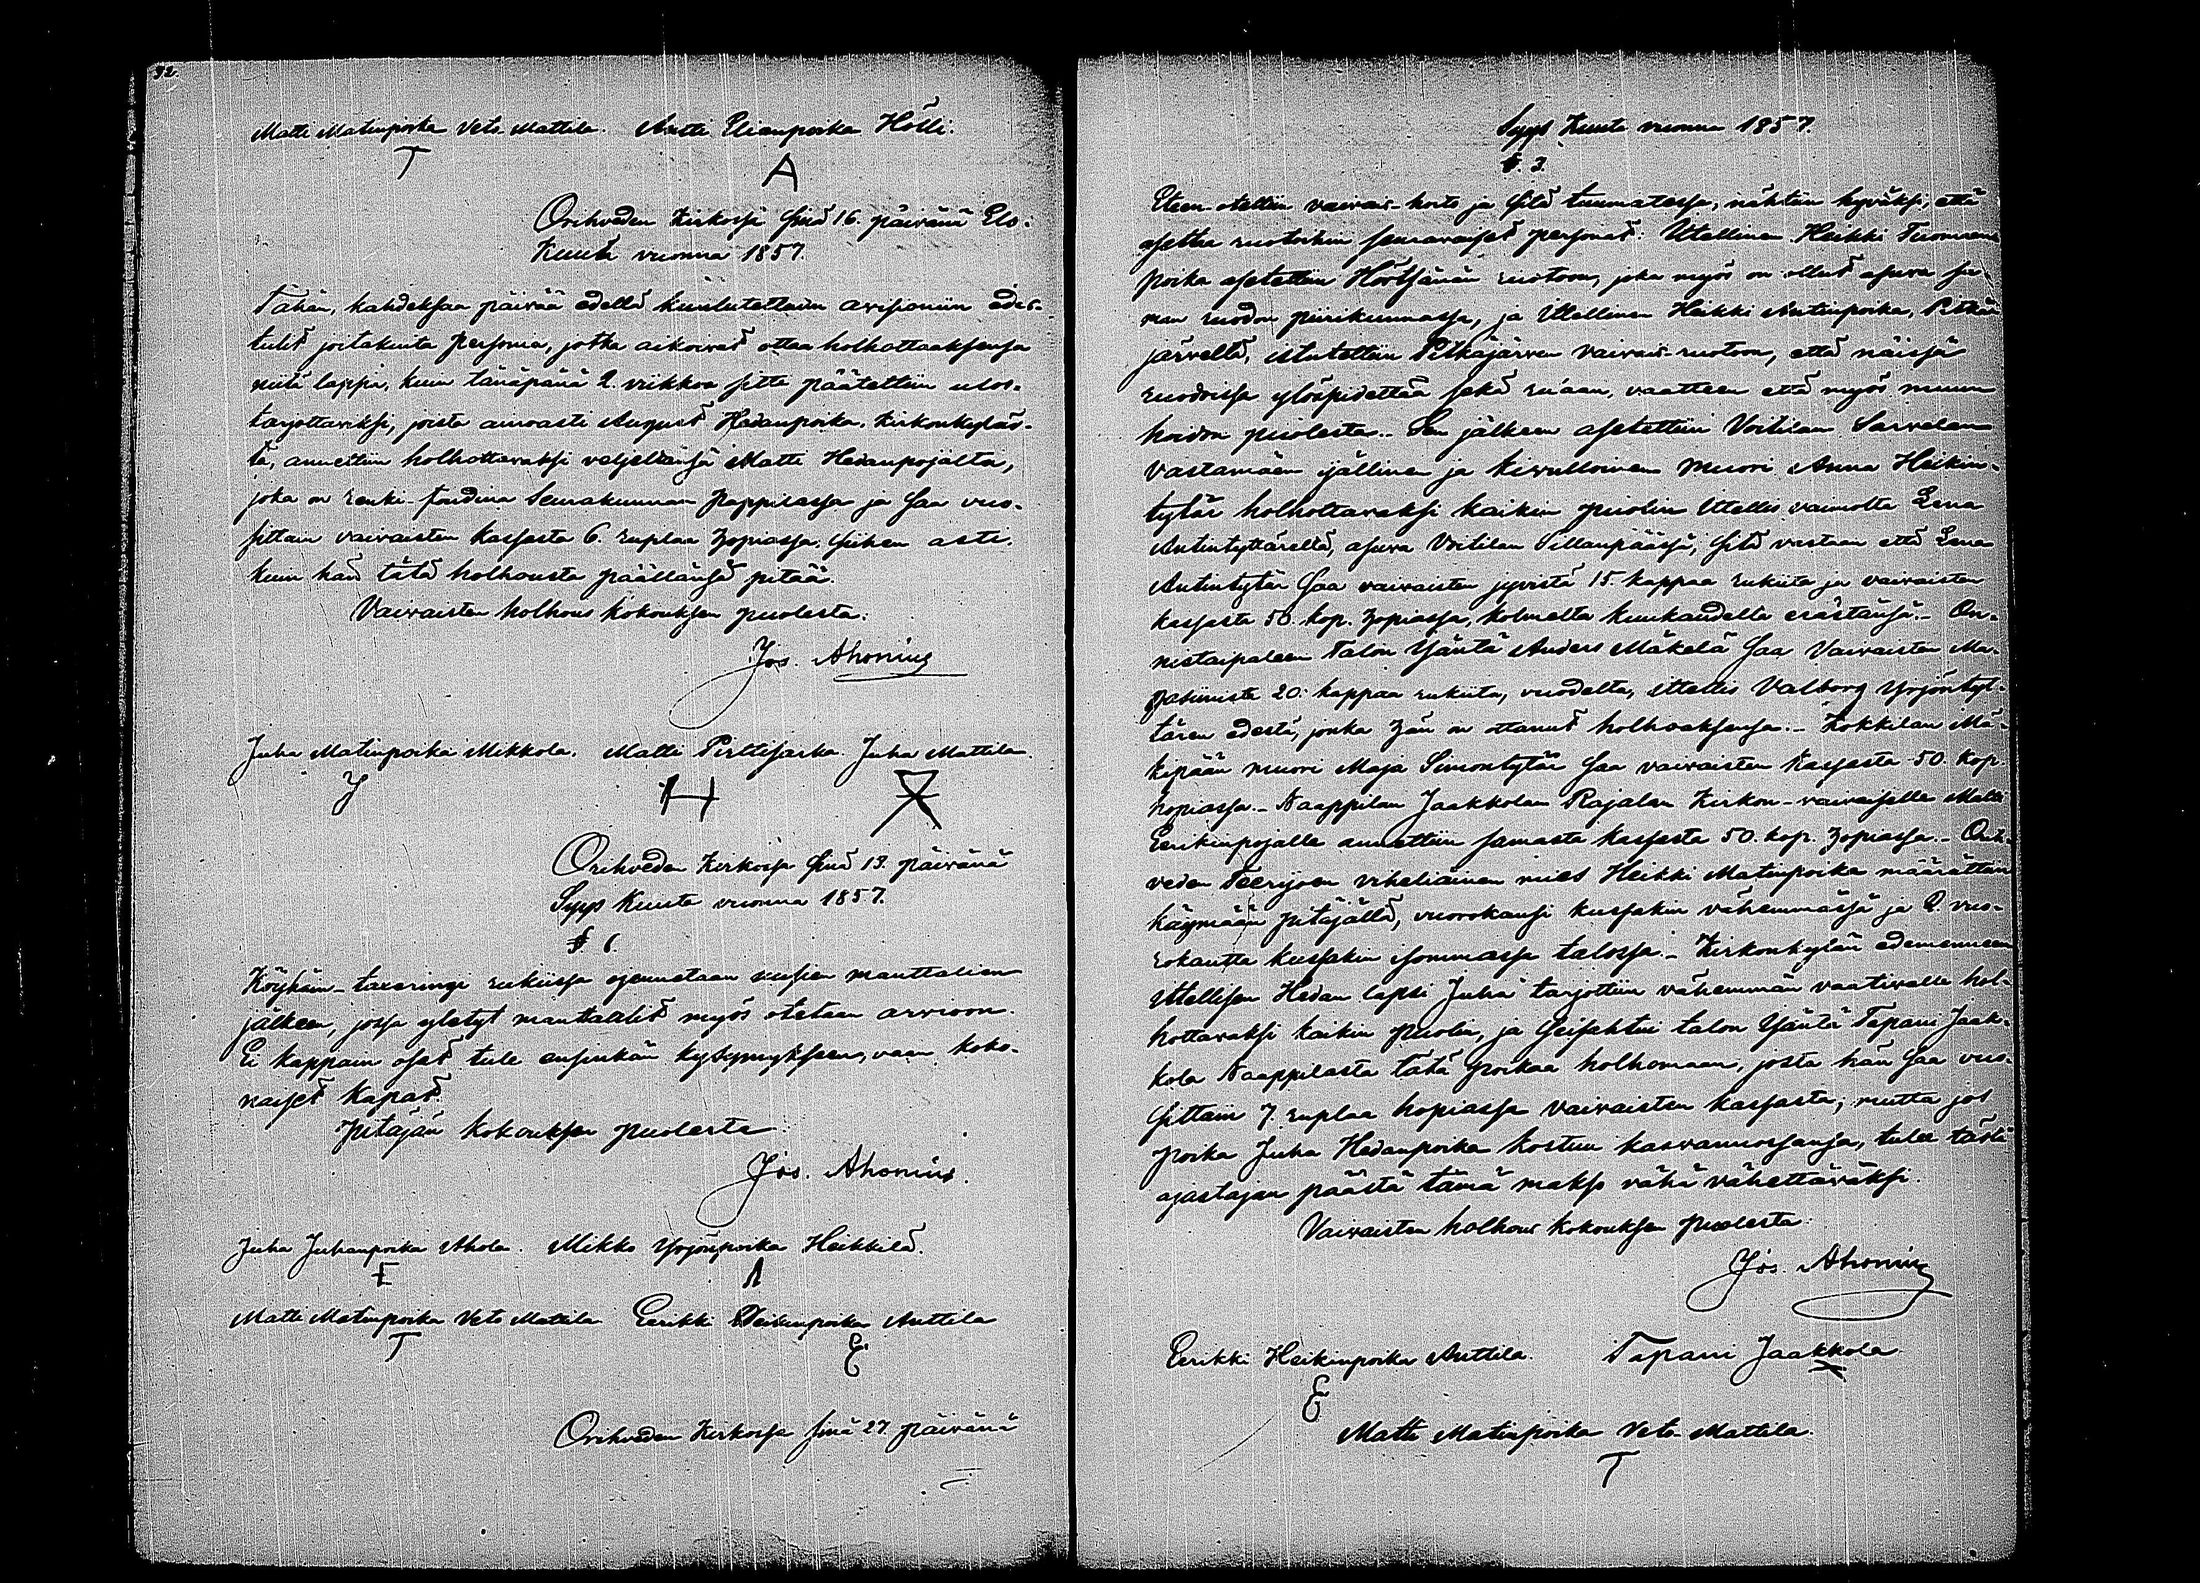 32.
Matti Matinpoika Veto Mattila. Antti Elianpoika Hölli.
T A
Orihveden Kirkossa sinä 16. päivänä Elo-
Kuuta vuonna 1857.
Tähän, kahdeksaa päivää edellä kuulutettuun
tulit joitakuita Personia, jotka aikoivat ottaa holhottaaksensa
niitä lapsia, kuin tänäpänä 2. viikkoa sitte päätettiin ulos-
tarjottaviksi, joista ainoasti August Hedanpoika, Kirkonkyläs-
tä, annettiin holhottavaksi veljeltänsä Matti Hedanpojalta,
joka on renki Seurakunnan Pappilassa ja saa vuo-
sittain vaivaisten kassasta 6. ruplaa hopiassa, siihen asti,
kuin hän tätä holhousta päällänsä pitää.
Vaivaisten holhous kokouksen puolesta:
Jos. Ahonius
Juha Matinpoika Mikkola. Matti Pirttijärvi. Juha Mattila.
Orihveden Kirkossa sinä 13. päivänä
Syys Kuuta vuonna 1857.
§ 6.
Köyhäin-taxeringi rukiissa ojennetaan uusien manttalien
jälkeen, jossa yletyt manttaalit myös otetaan arvioon.
Ei kappain osat tule ensinkän kysymykseen, vaan koko-
naiset Kapat.
Pitäjän kokouksen puolesta
Jos. Ahonius.
Juha Juhanpoika Ahola. Mikko Yrjönpoika Heikkilä.
Matti Matinpoika Veto Mattila Eerikki Heikinpoika Anttila
T E
Orihveden Kirkossa sinä 27. päivänä
Syys Kuuta vuonna 1857.
§. 3.
Eteen-otettiin vaivais-hoito ja sitä tuumatessa, nähtiin hyväksi, että
asettaa ruotoihin seuraavaiset personat: Itsellinen Heikki Tuomaan
poika asetettiin Höötsänän ruotoon, joka myös on ollut asuva sa-
man ruodon piirikunnassa, ja Itsellinen Heikki Antinpoika, Pitkä-
järveltä, istutettiin Pitkäjärven vaivais-ruotoon, että näissä
ruodoissa ylöspidettää sekä ru'aan, vaatteen että myös muun
hoidon puolesta.. Sen jälkeen asetettiin Voitilan Sarvelan
vastamäen ijällinen ja kivulloinen muori Anna Heikin-
tytär holhottavaksi kaikin puolin Itsellis vaimolta Lena
Antintyttäreltä, asuva Voitilan Sillanpäässä, sitä vastaan että Lena
Antintytär saa vaivaisten jyvistä 15. kappaa rukiita ja vaivaisten
kassasta 50. kop. hopiassa, kolmelta kuukaudelta erästänsä.- On-
nistaipaleen Talon Isäntä Anders Mäkelä saa Vaivaisten Ma-
gasiinista 20. kappaa rukiita, vuodelta, itsellis Valborg Yrjöntyt-
tären edestä, jonka hän on ottanut holhoaksensa.- Kokkilan Mä-
kipään muori Maja Simontytär saa vaivaisten Kassasta 50. kop.
hopiassa.- Naappilan Jaakkolan Rajalan Kirkon-vaivaiselle Matti
Eerikinpojalle annettiin samasta kassasta 50. kop. hopiassa.- Orih-
veden Teerijoen viheliäinen mies Heikki Matinpoika määrättiin
käymään pitäjällä, vuorokausi kussakin vähemmässä ja 2. vuo-
rokautta kussakin isommassa talossa.- Kirkonkylän edesmenneen
itsellisen Hedan lapsi Juha tarjottiin vähemmän vaativalle hol-
hottavaksi kaikin puolin, ja talon Isäntä Tapani Jaak-
kola Naappilasta tätä poikaa holhomaan, josta hän saa vuo-
sittain 7. ruplaa hopiassa vaivaisten kassasta; mutta jos
poika Juha Hedanpoika kostuu kasvannossansa, tulee tästä
ajastajan päästä tämä makso vähä vähettäväksi.
Vaivaisten holhous kokouksen puolesta:
Jos. Ahonius
Eerikki Heikinpoika Anttila. Tapani Jaakkola
E X
Matti Matinpoika Veto Mattila.
T